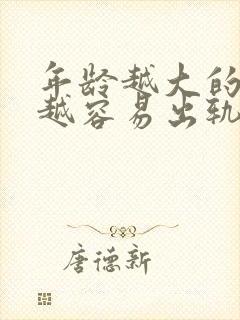 年龄越大的
越容易出轨
唐德新